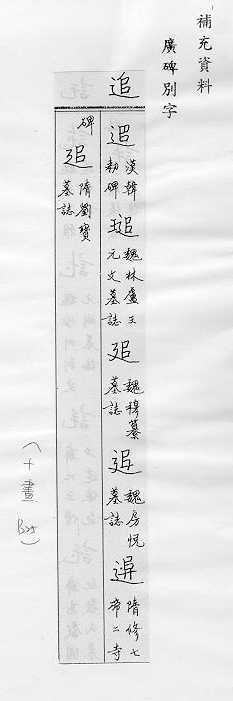 補充資料
廣碑別字
追
漢韓勑碑
魏林慮王元文墓誌
魏穆纂墓誌
魏房悅墓誌
隋修七帝二寺
碑
隋劉寶墓誌
(十畫